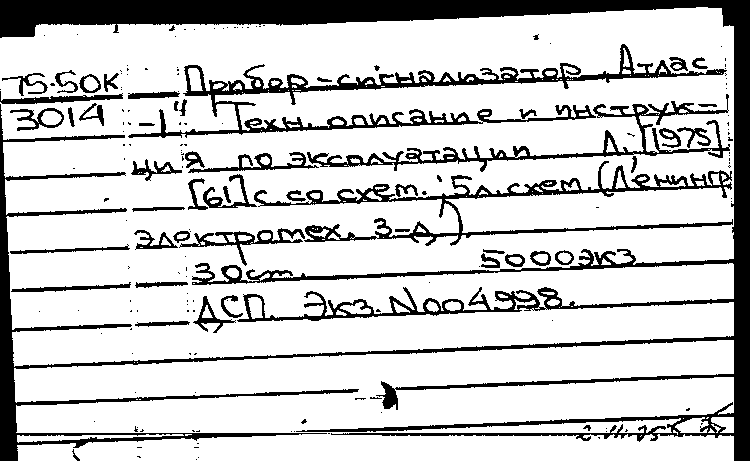 75-50К Прибор-сигнализатор „Атлас
3014 -1" Техн. описание и инструк-
ция по эксплуатации. Л., [1975]
[61] с. со схем.; 5 л. схем. (Ленингр
электротех. з-д).
30 ст. 5000 экз.
ДСП. Экз. №004998.